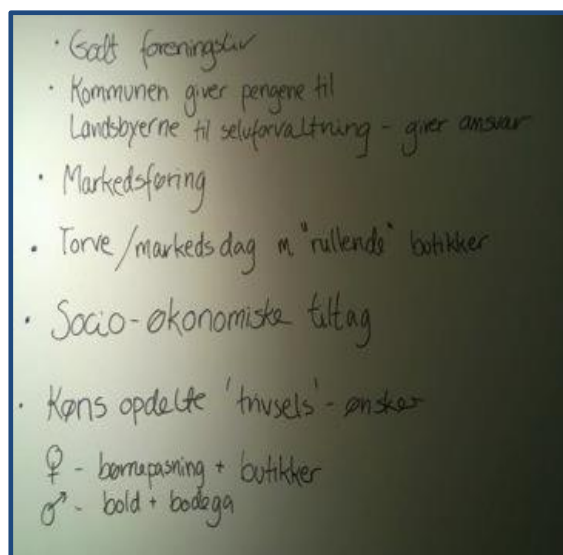 · Godt foreningsliv
· Kommunen giver pengene til
Landsbyerne til selvforvaltning - giver ansvar
· Markedsføring
· Torve/markedsdag m. "rullende" butikker
· Socio-økonomiske tiltag
· Køns opdelte 'trivsels' - ønsker
♀ - børnepasning + butikker
♂ - bold + bodega